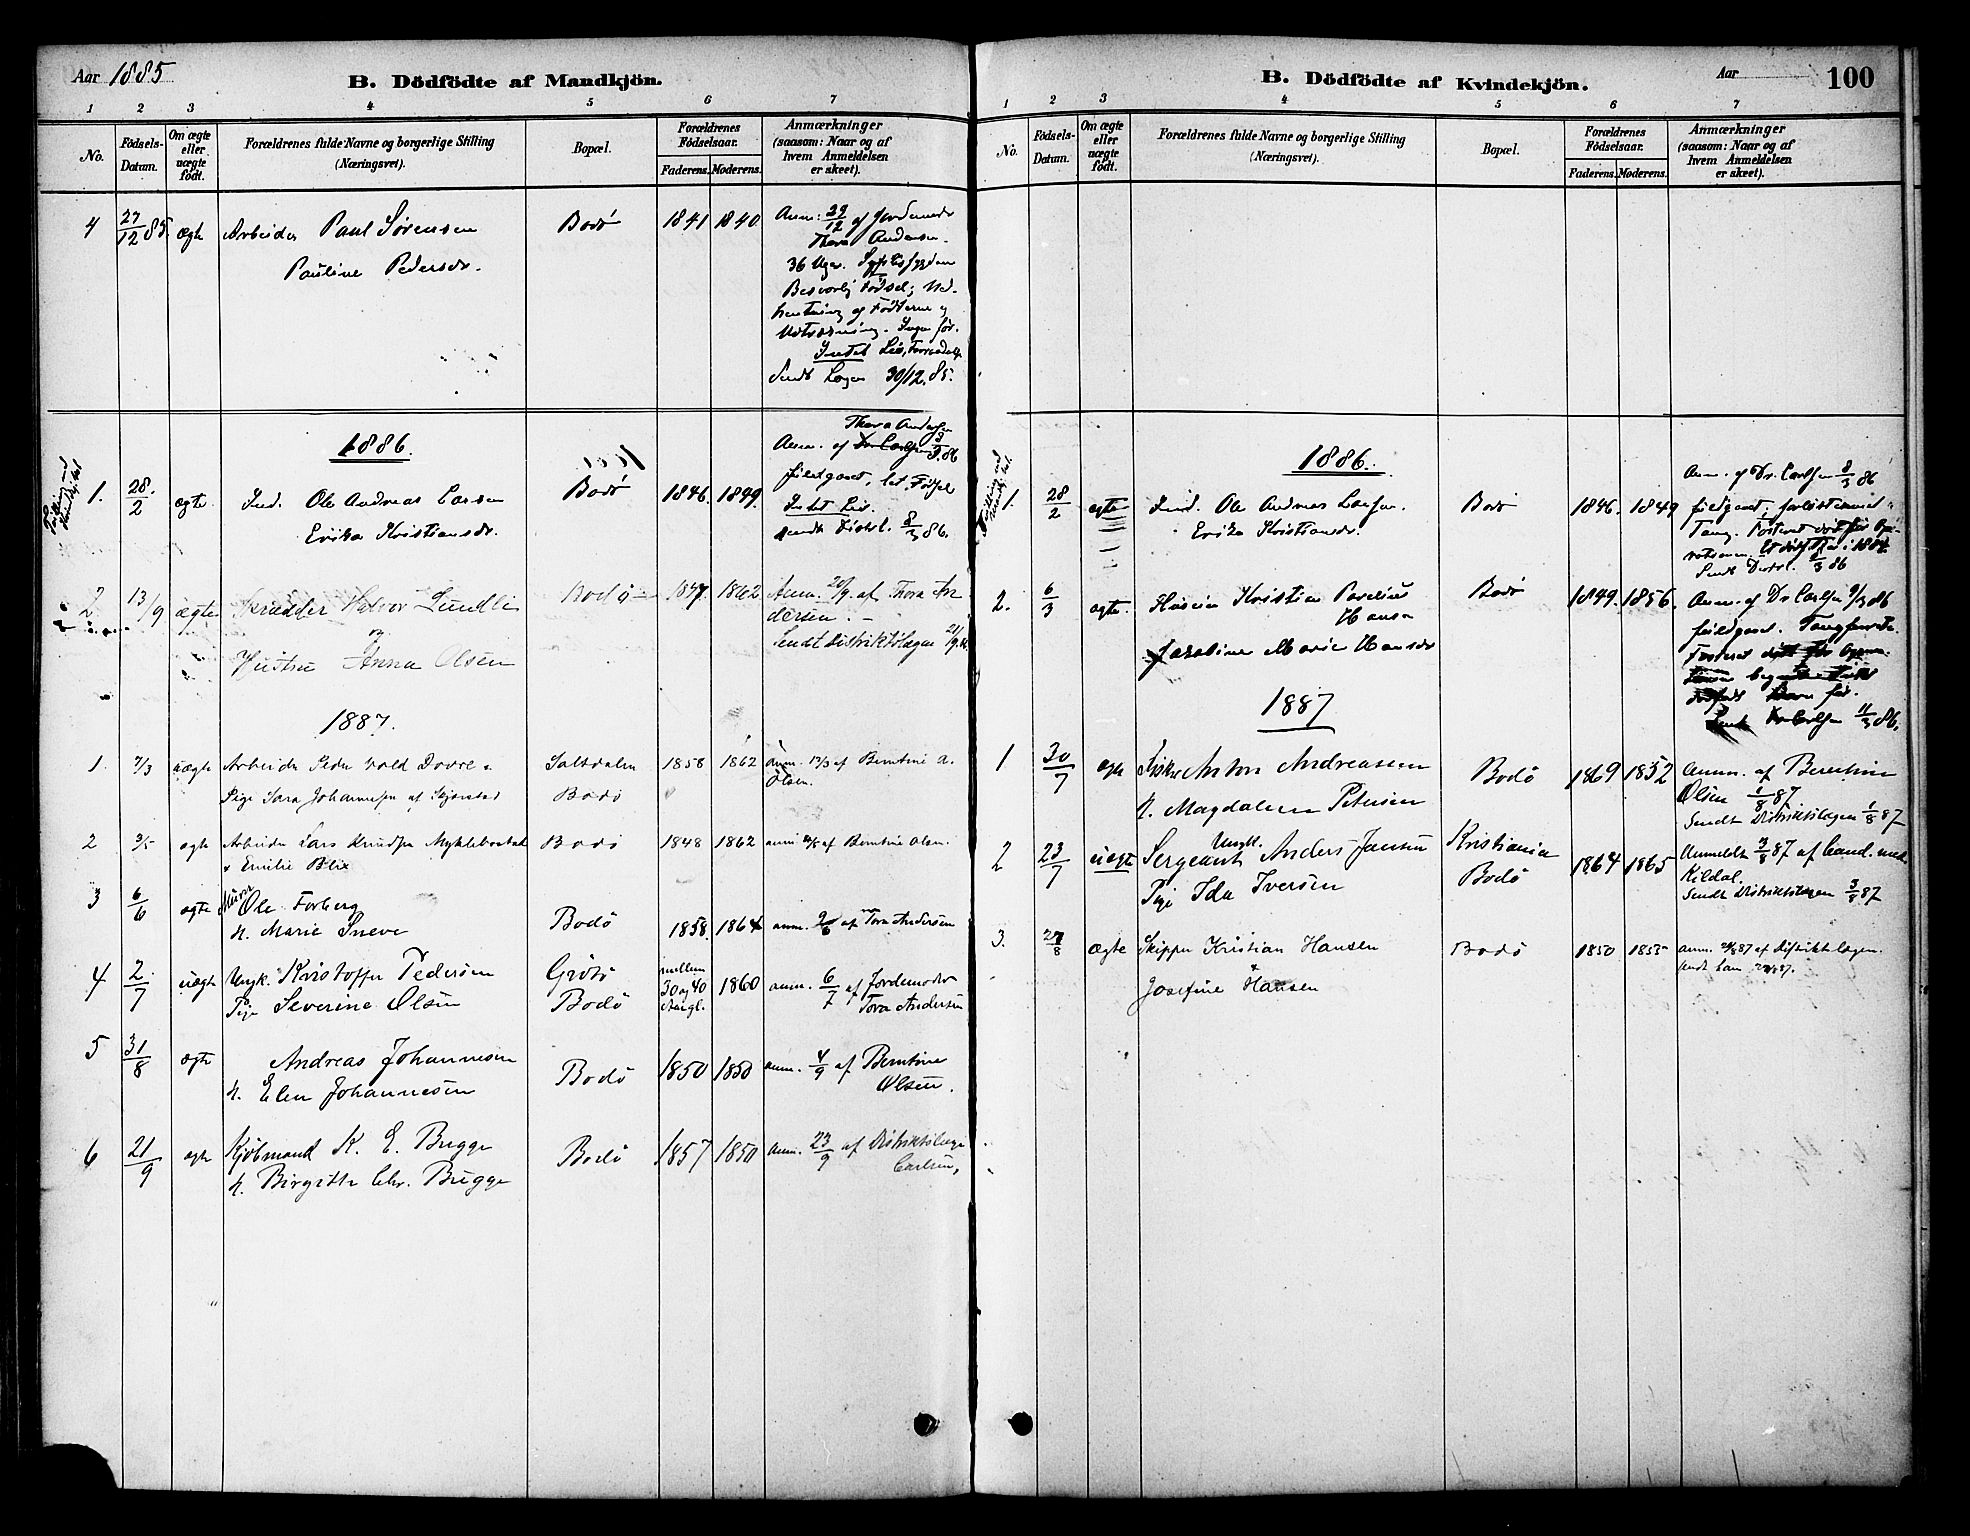 Aar 1885
B. Dödfödte af Mandkjön.
1 2 3 4 5 6 7
No.
Födsels-Datum.
Om ægte eller uægte födt.
Forældrenes fulde Navne og borgerlige Stilling (Næringsvei).
Bopæl.
Forældrenes Födselsaar.
Faderens. Moderens.
Anmærkninger (saasom: Naar og af hvem Anmeldelsen er skeet).
4 27/12 85. ægte Arbeider Paul Sørensen Bodø 1841 1840 Anm: 29/12 af Jordemodr
Pauline Pedersdr.
Thora Andersen.
36 Uger.
Besværlig Fødsel; Ned-
hentning af Fødderne og
Udtrækning.
Intet Liv,
Sendt Lægen 30/12. 85.
1886.
Tvilling med
1. 28./2 ægte Ind. Ole Andreas Larsen Bodø 1846. 1849.
Erika Kristiansdr.
Thora Andersen
Anm. af Dr Carlsen 8/3 86
fuldgaaet, let Fødsel
Intet Liv.
sendt Distrl. 8/3 86.
2 13/9 ægte Skrædder Halvor Lundli Bodø 1847 1862 Anm. 20/9. af Thora An
og
dersen. -
Hustru Anna Olsen
Sendt Distriktslægen 21/9
1887.
1. 7/3 uægte Arbeider Peder Vold Dovre Saltdalen 1858 1862 anm. 17/3 af Berntine A.
Pige Sara Johannesen af Bodø
Olsen.
2 3/5 ægte Arbeider Lars Knudsen Myklebostad Bodø 1848 1862 anm. af Berntine Olsen.
& Emilie Blix
3 6/6 ægte Murer Ole Forberg
H. Marie Sneve Bodø 1858. 1864 anm. 9/6 af Tora Andersen
4 2/7 uægte Ungk. Kristoffer Pedersen Grøtø mellem 30 og 40 Aar gl. 1860 anm. 6/7 af Jordemoder
Pige Severine Olsen Bodø
Tora Andersen
5 31/8 ægte Andreas Johannesen
H. Elen Johannesen Bodø 1850 1850 anm. 4/9 af Berntine
Olsen.
6 21/9 ægte Kjøbmand K. E. Bugge
H. Birgitte Chr. Bugge Bodø 1857 1850 anm. 23/9 af Distriktslæge
Carlsen,
B. Dödfödte af Kvindekjön.
Aar
100
1 2 3 4 5 6 7
No.
Födsels-Datum.
Om ægte eller uægte födt.
Forældrenes fulde Navne og borgerlige Stilling (Næringsvei).
Bopæl.
Forældrenes Födselsaar.
Faderens. Moderens.
Anmærkninger (saasom: Naar og af hvem Anmeldelsen er skeet).
1886.
Tvilling med
1. 28/2 ægte Ind. Ole Andreas Larsen. Bodø 1846. 1849
Erika Kristiansdr.
Anm. af Dr. Carlsen 8/3 86
fuldgaaet;
Tang. Fosteret dødt før Ope-
rationen.
Sendt Distrl. 8/3 86
2. 6/3 ægte. Kristian Parelius Bodø 1849. 1856. Anm. af Dr Carlsen 9/3 86
Hansen
Marie Hansdr
fuldgaaet.
Fosteret dødt før
Sendt Dr Carlsen 11/3 86.
1887
1 30/7 ægte Anton Andreassen
H. Magdalene Petersen Bodø 1869 1852 Anm. af Berentine
Olsen 1/8 87
Sendt Distriktslægen 1/8 87
2 23/7 uægte Ungk. Sergeant Anders Jansen Kristiania 1864 1865 Anmeldt 3/8 87 af Cand. med.
Pige Ida Iversen Bodø
Kildal,
Sendt Distriktslægen 3/8 87
3. 27/8 ægte Skipper Kristian Hansen Bodø 1850 1855 anm. 87 af Distriktslægen.
&
Josefine Hansen